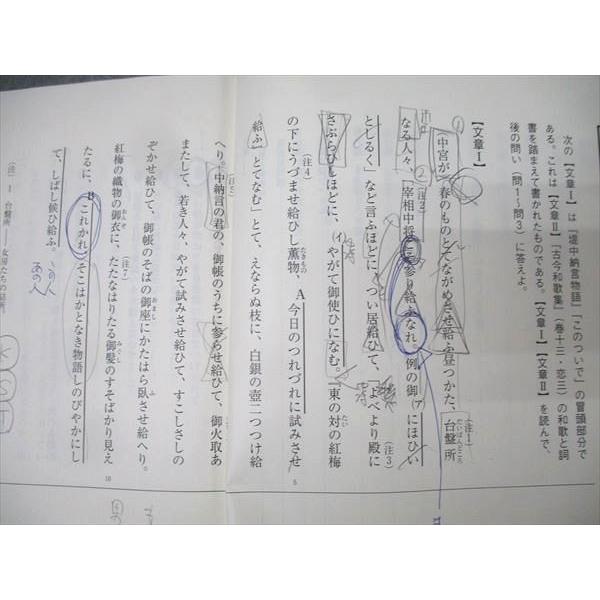 次の【文章Ⅰ】は『堤中納言物語』「このついで」の冒頭部分で
ある。これは【文章Ⅱ】『古今和歌集』(巻十三・恋三)の和歌と詞
書を踏まえて書かれたものである。【文章Ⅰ】【文章Ⅱ】を読んで、
後の問い(問1〜問3)に答えよ。
【文章Ⅰ】
「中宮が」春のものとてながめさせ給ふ昼つかた、台盤所
だいばんどころ
(注1)
なる人々、「宰相中将こそ参り給ふなれ。例の御(ア)にほひい
(注2)
としるく」など言ふほどに、つい居給ひて、「よべより殿に
(注3)
さぶらひしほどに、(イ)やがて御使ひになむ。『東の対の紅梅
たい
の下にうづませ給ひし薫物、A今日のつれづれに試みさせ
(注4)
たきもの
給ふ』とてなむ」とて、えならぬ枝に、白銀の壺二つつけ給
5
へり。中納言の君の、御帳のうちに参らせ給ひて、御火取あ
(注5)
またして、若き人々、やがて試みさせ給ひて、すこしさしの
ぞかせ給ひて、御帳のそばの御座にかたはら臥させ給へり。
おまし
ふ
紅梅の織物の御衣に、たたなはりたる御髪のすそばかり見え
(注7)
みぐし
たるに、Bこれかれ、そこはかとなき物語しのびやかにし
10
て、しばし候ひ給ふ。
この人
あの人
(注) 1 台盤所――女房たちの詰所